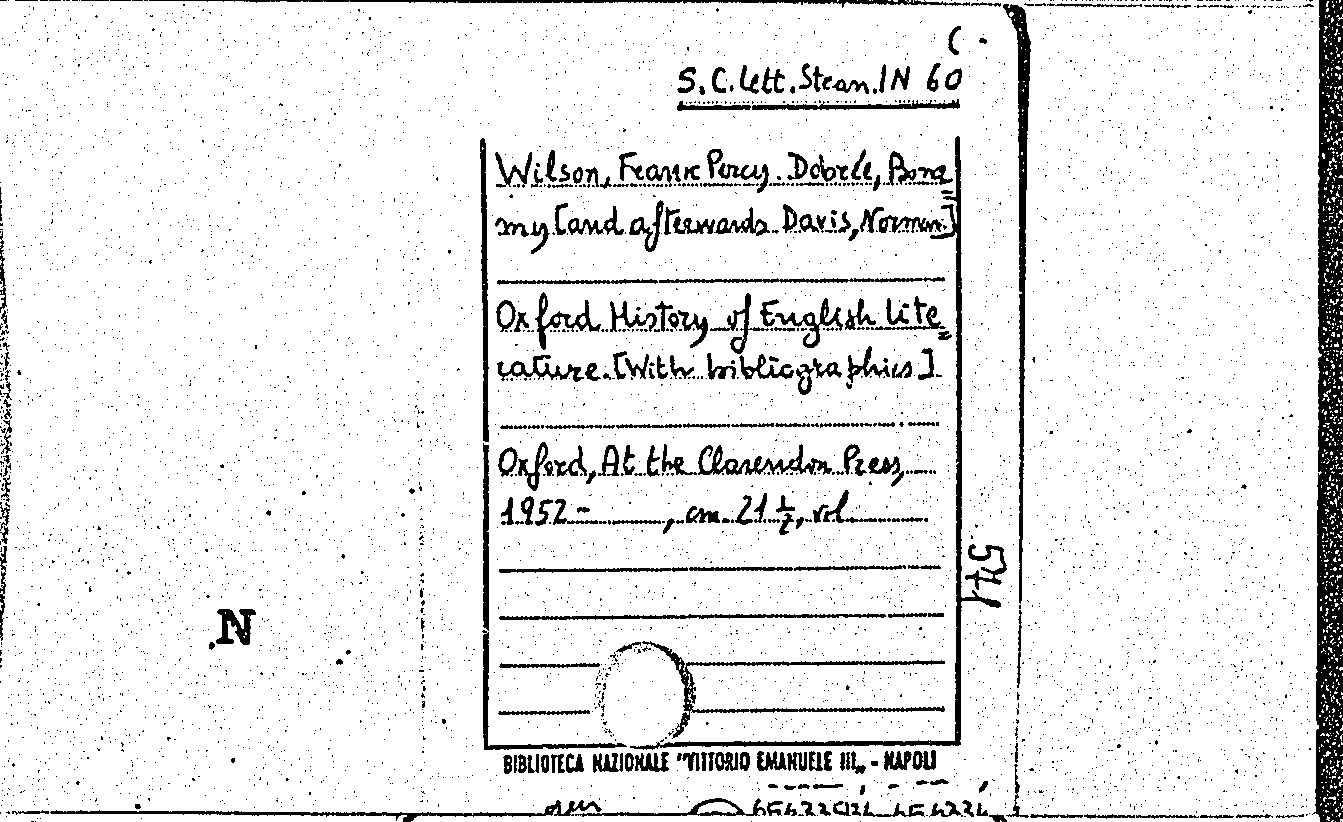 S.C. Lett. Stran. IN 60
Wilson, Frank Percy. Dobrée, Bona
my [and afterwards Davis, Norman.]
Oxford History of English Lite
rature. [With bibliographies]
Oxford, At the Clarendon Press,
1952- , cm. 21 1/2, vol.
541
N
BIBLIOTECA NAZIONALE "VITTORIO EMANUELE III„ - NAPOLI